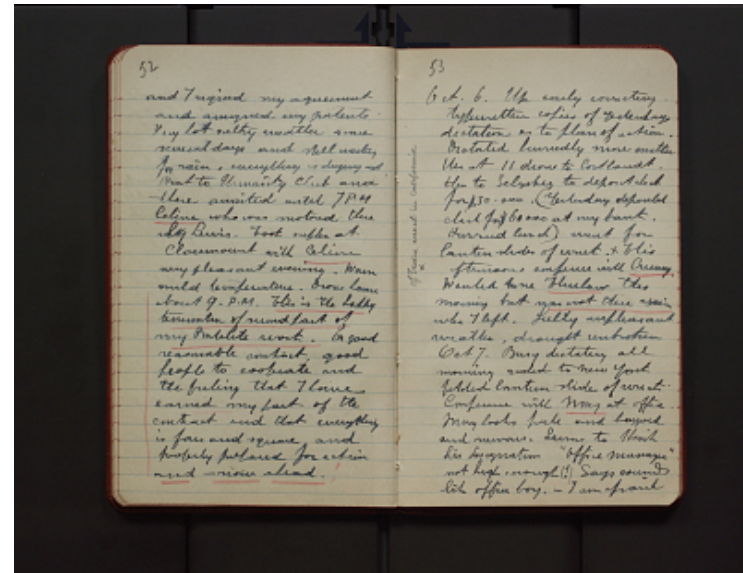 52
and I signed my agreement
and assigned my patents
Very hot sultry weather since
several days and still waiting
for rain, everything is drying out
Went to University Club and
there awaited until 7 P.M
Celine who was motored there
by Lewis. Took supper at
Claremount with Celine
very pleasant evening. Warm
mild temperature. Drove home
about 9. P.M. This is the happy
termination of second part of
my Bakelite work. A good
reasonable contract, good
people to cooperate and
the feeling that I have
earned my part of the
contract and that everything
is fair and square, and
properly prepared for action
and work ahead.!
53
Oct. 6. Up early correcting
typewritten copies of yesterdays
dictation as to plan of action.
Dictated hurriedly more matter
then at 11 drove to Cortlandt
then to to deposit check
for $30.000. (Yesterday deposited
check for at my bank.
Hurried lunch) went for
lantern slides of wreck + This
afternoon conference with
Wanted Thurlow this
morning but was not there again
when I left. Sultry unpleasant
weather, drought
Oct 7. Busy dictating all
morning went to New York
fetched lantern slide of wreck
Conference with May at office.
May looks pale and haggard
and nervous. Seems to think
his designation "Office manager"
not high enough (!) Says sounds
like office boy. – I am afraid
of wreck in California
x